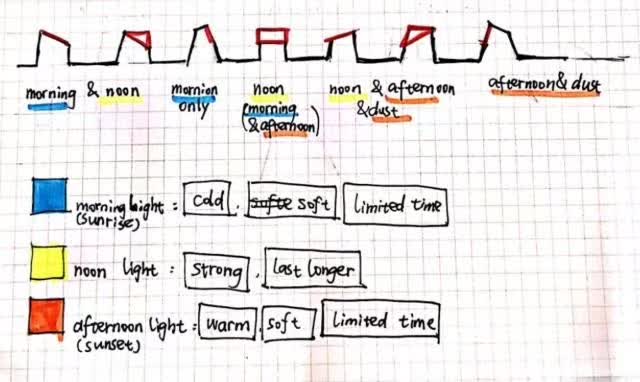 morning & noon
mornion only
noon (morning & afternoon)
noon & afternoon & dust
afternoon & dust
morning light : cold , softe soft limited time
(sunrise)
noon light : strong , last longer
afternoon light : warm , soft limited time
(sunset)